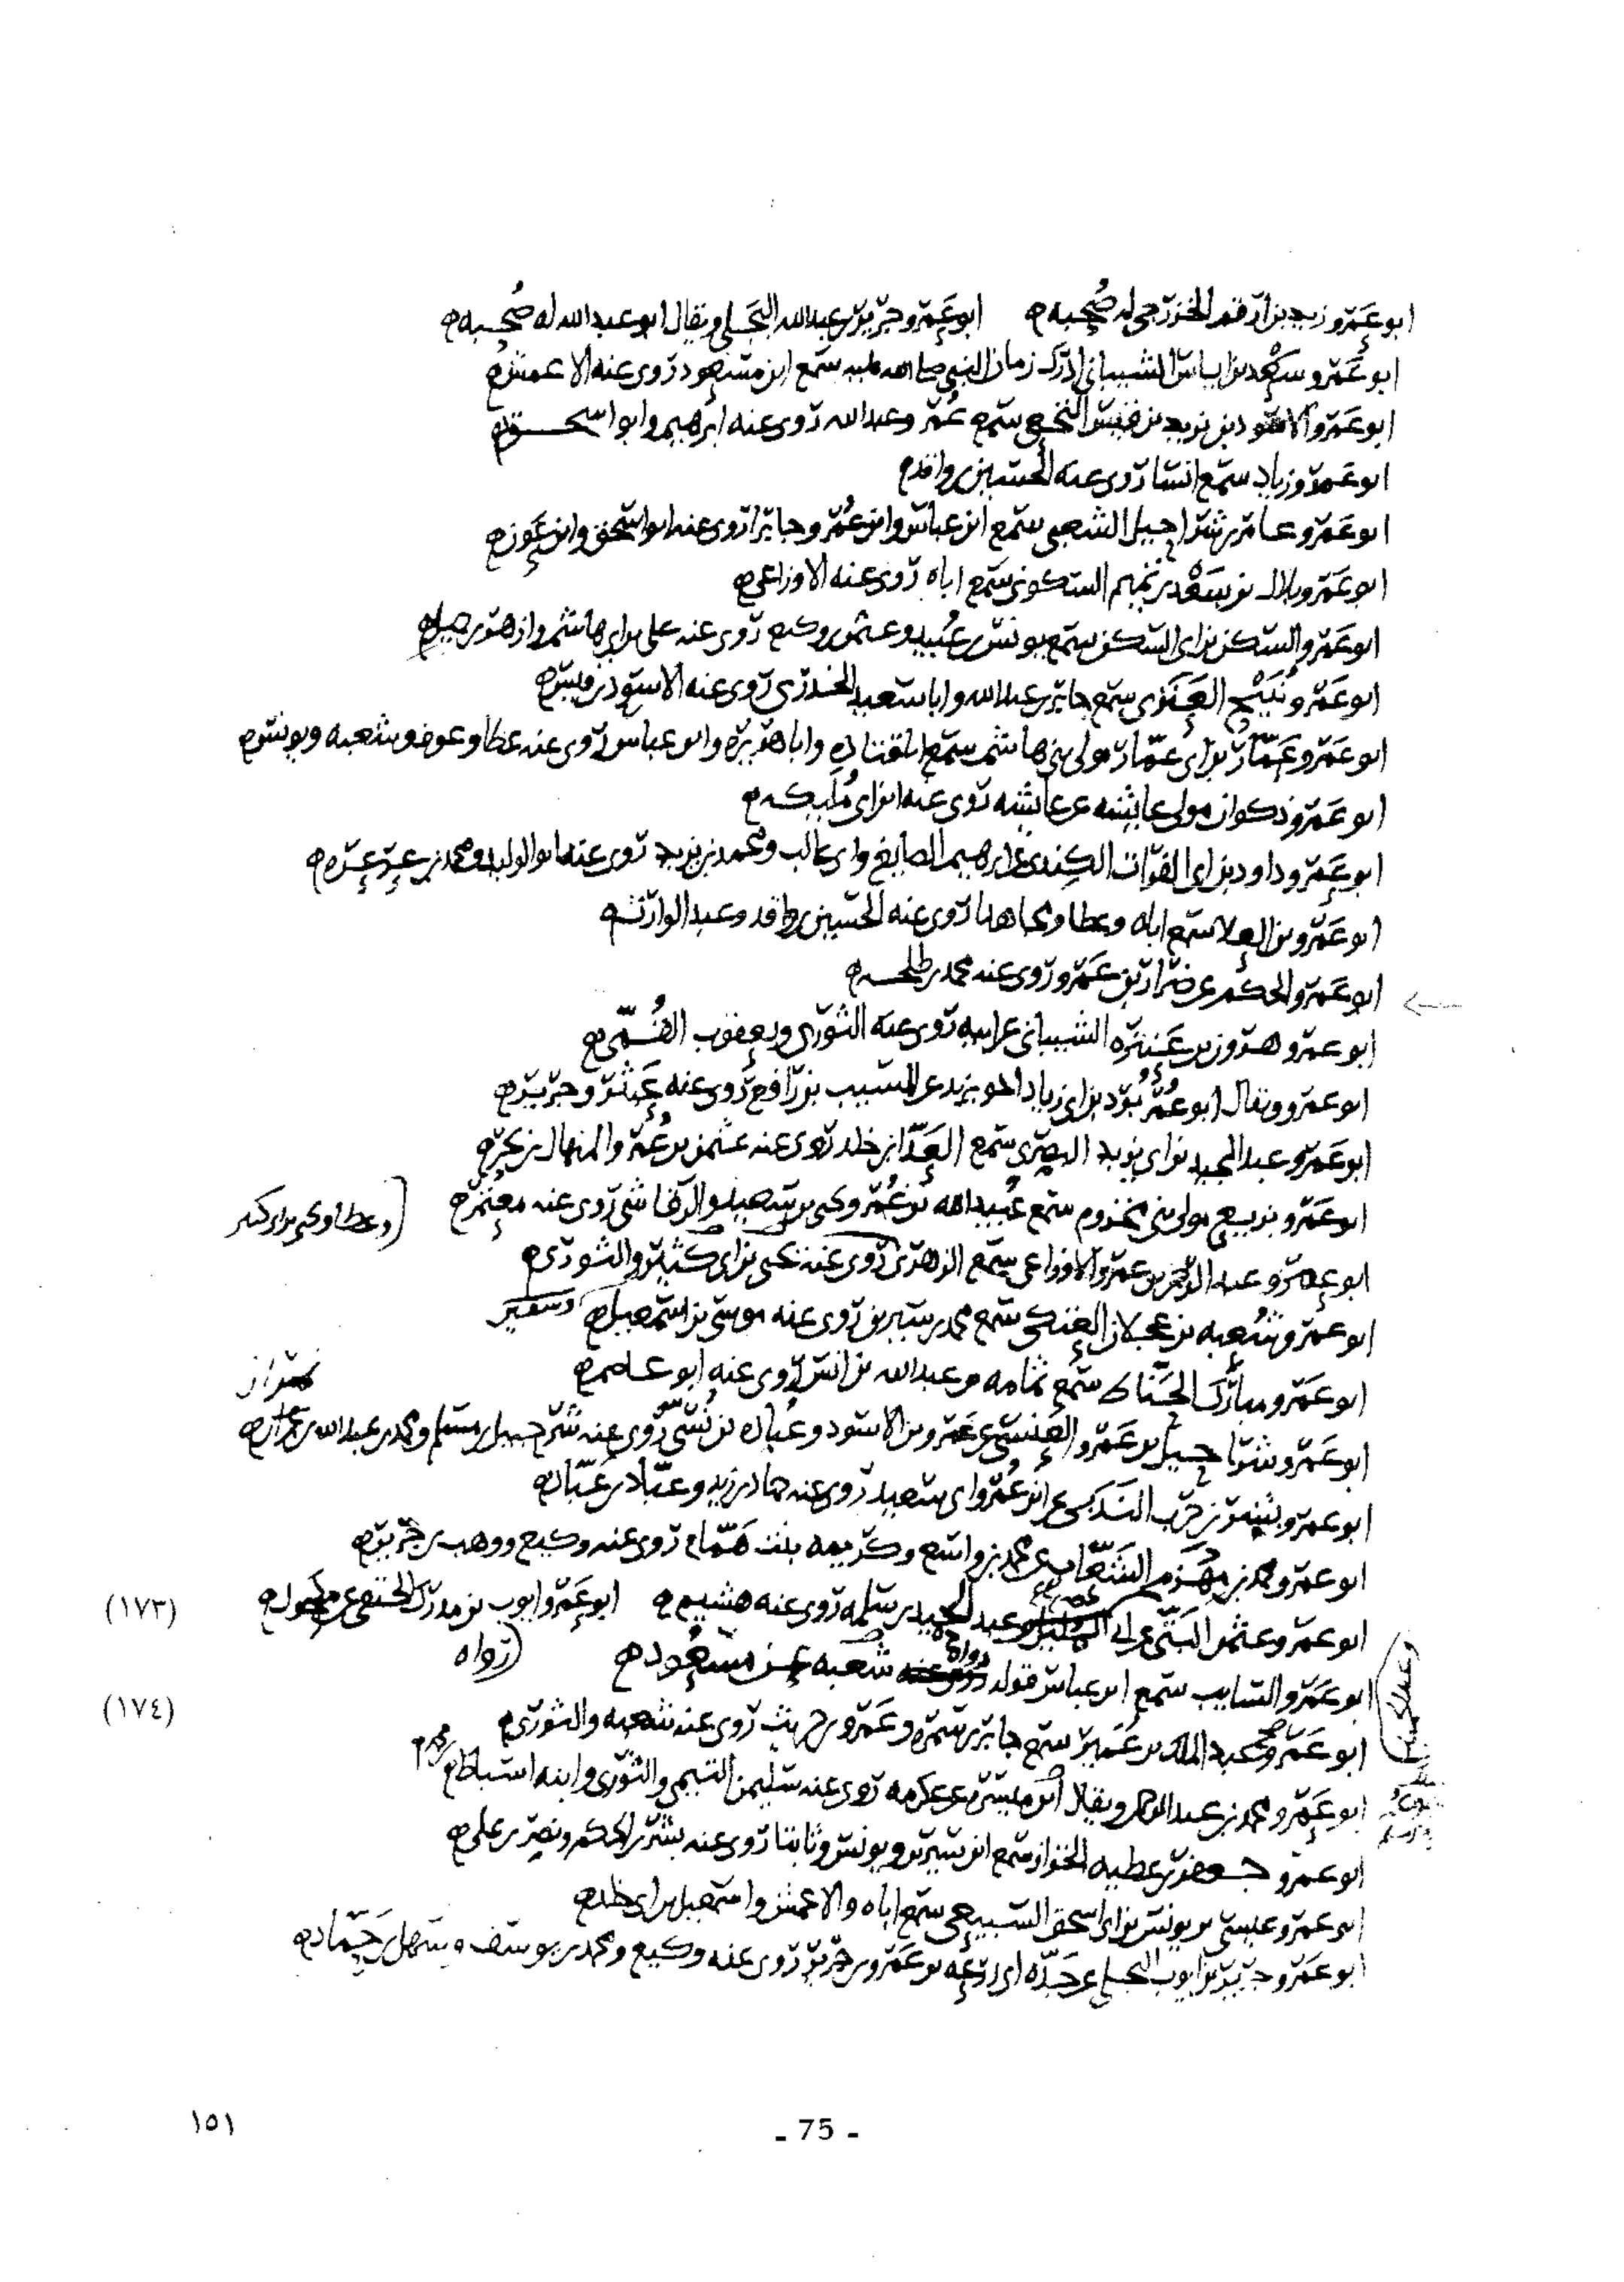 ابو عَمرو زيد بن ارقم الخزرجي له صُحبه ابو عَمرو جرير بن عبدالله البَجَلي ويقال ابو عبدالله له صُحبه
ابو عَمرو سَعْد بن اياس الشيباني ادرك زمان النبي صلى الله عليه سَمع ابن مسعود روى عنه الاعمش
ابو عَمرو الاسود بن يزيد بن قيس النخعي سمع عُمر وعبدالله روى عنه ابرهيم وابو اسحق
ابو عَمرو زياد سمع انسا روى عنه الحسين بن واقد
ابو عَمرو عامر بن شراحيل الشعبي سمع ابن عباس وابن عُمر وجابرا روى عنه ابو اسحق وابن عَون
ابو عَمرو بلال بن سَعْد بن تميم السكوني سَمع اباه روى عنه الاوزاعي
ابو عَمرو السكن بن ابي السكن سمع يونس بن عُبيد وعثمن وكيع روى عنه علي بن ابي هاشم وازهر بن جميل
ابو عَمرو نُبَيْح العَنَزي سمع جابر بن عبدالله وابا سعيد الخدري روى عنه الاسود بن قيس
ابو عَمرو عَمّار بن ابي عمّار مولى بني هاشم سمع ابا قتاده وابا هريره وابن عباس روى عنه عطا وعوف وشعبه ويونس
ابو عَمرو ذكوان مولى عايشه عن عايشه روى عنه ابن ابي مُليكه
ابو عَمرو داود بن ابي الفرات الكِندي عن ابرهيم الصايغ وابي غالب ومحمد بن زيد روى عنه ابو الوليد ومحمد بن عرعره
ابو عَمرو بن العلا سمع اباه وعطا ومجاهدا روى عنه الحسين بن واقد وعبد الوارث
ابو عَمرو الحكم عن ضرار بن عَمرو روى عنه محمد بن طلحه
ابو عمرو هرون بن عَنتره الشيباني عن ابيه روى عنه الثوري ويعقوب القُمّي
ابو عمرو ويقال ابو عُمر بُرد بن ابي زياد اخو يزيد عن المسيب بن رافع روى عنه عَبثر وجرير
ابو عَمرو عبد المجيد بن ابي يزيد البصري سمع العَدّا بن خلد روى عنه عثمن بن عُمر والمنهال بن بحر
ابو عَمرو بزيع مولى بني مخزوم سمع عُبيد الله بن عُمر ويحيى بن سعيد والرقاشي روى عنه معتمر
وعطا ويحيى بن ابي كثير
ابو عَمرو عبد الرحمن بن عمرو الاوزاعي سمع الزهري روى عنه يحيى بن ابي كثير والثوري
ابو عمرو شُعبه بن عجلان العتكي سمع محمد بن سيرين روى عنه موسى بن اسمعيل
ابو عَمرو مبارك الخيّاط سمع ثمامه بن عبدالله بن انس روى عنه ابو عاصم
ابو عَمرو شراحيل بن عَمرو العَنسي عن عَمرو بن الاسود وعُباده بن نُسَيّ روى عنه شُرحبيل بن مسلم ومحمد بن عبدالله بن
ابو عمرو بشر بن حَرب النَدَبي عن ابن عُمر وابي سعيد روى عنه حماد بن زيد وعبّاد بن عَبّاد
ابو عمرو محمد بن مِهزم الشَعّاب عن محمد بن واسع وكريمه بنت هَمّام روى عنه وكيع ووهب بن جرير
ابو عمرو عثمن البَتّي عن ابي الخليل وعبد الحميد بن سلمه روى عنه هشيم ابو عَمرو ايوب بن مدرك الحنفي عن مكحول
(١٧٣)
ابو عَمرو السايب سمع ابن عباس قوله رواه شعبه عن مسعود
(رواه
(١٧٤)
ابو عَمرو عبد الملك بن عُمير سمع جابر بن سمره وعَمرو بن حريث روى عنه شعبه والثوري
ابو عَمرو محمد بن عبد الرحمن ويقال ابن ميسره عن عكرمه روى عنه سليمن التيمي والثوري وابنه اسباط بن محمد
ابو عمرو جعفر بن عطيه الخزاز سمع ابن سيرين ويونس وثابتا روى عنه بشر بن الحكم ونصر بن علي
ابو عمرو عيسى بن يونس بن ابي اسحق السبيعي سمع اباه والاعمش واسمعيل بن ابي خلد
ابو عَمرو جرير بن ايوب البجلي عن جَدّه ابي زرعه بن عَمرو بن جرير روى عنه وكيع ومحمد بن يوسف وسهل بن حَمّاد
- 75 -
١٥١